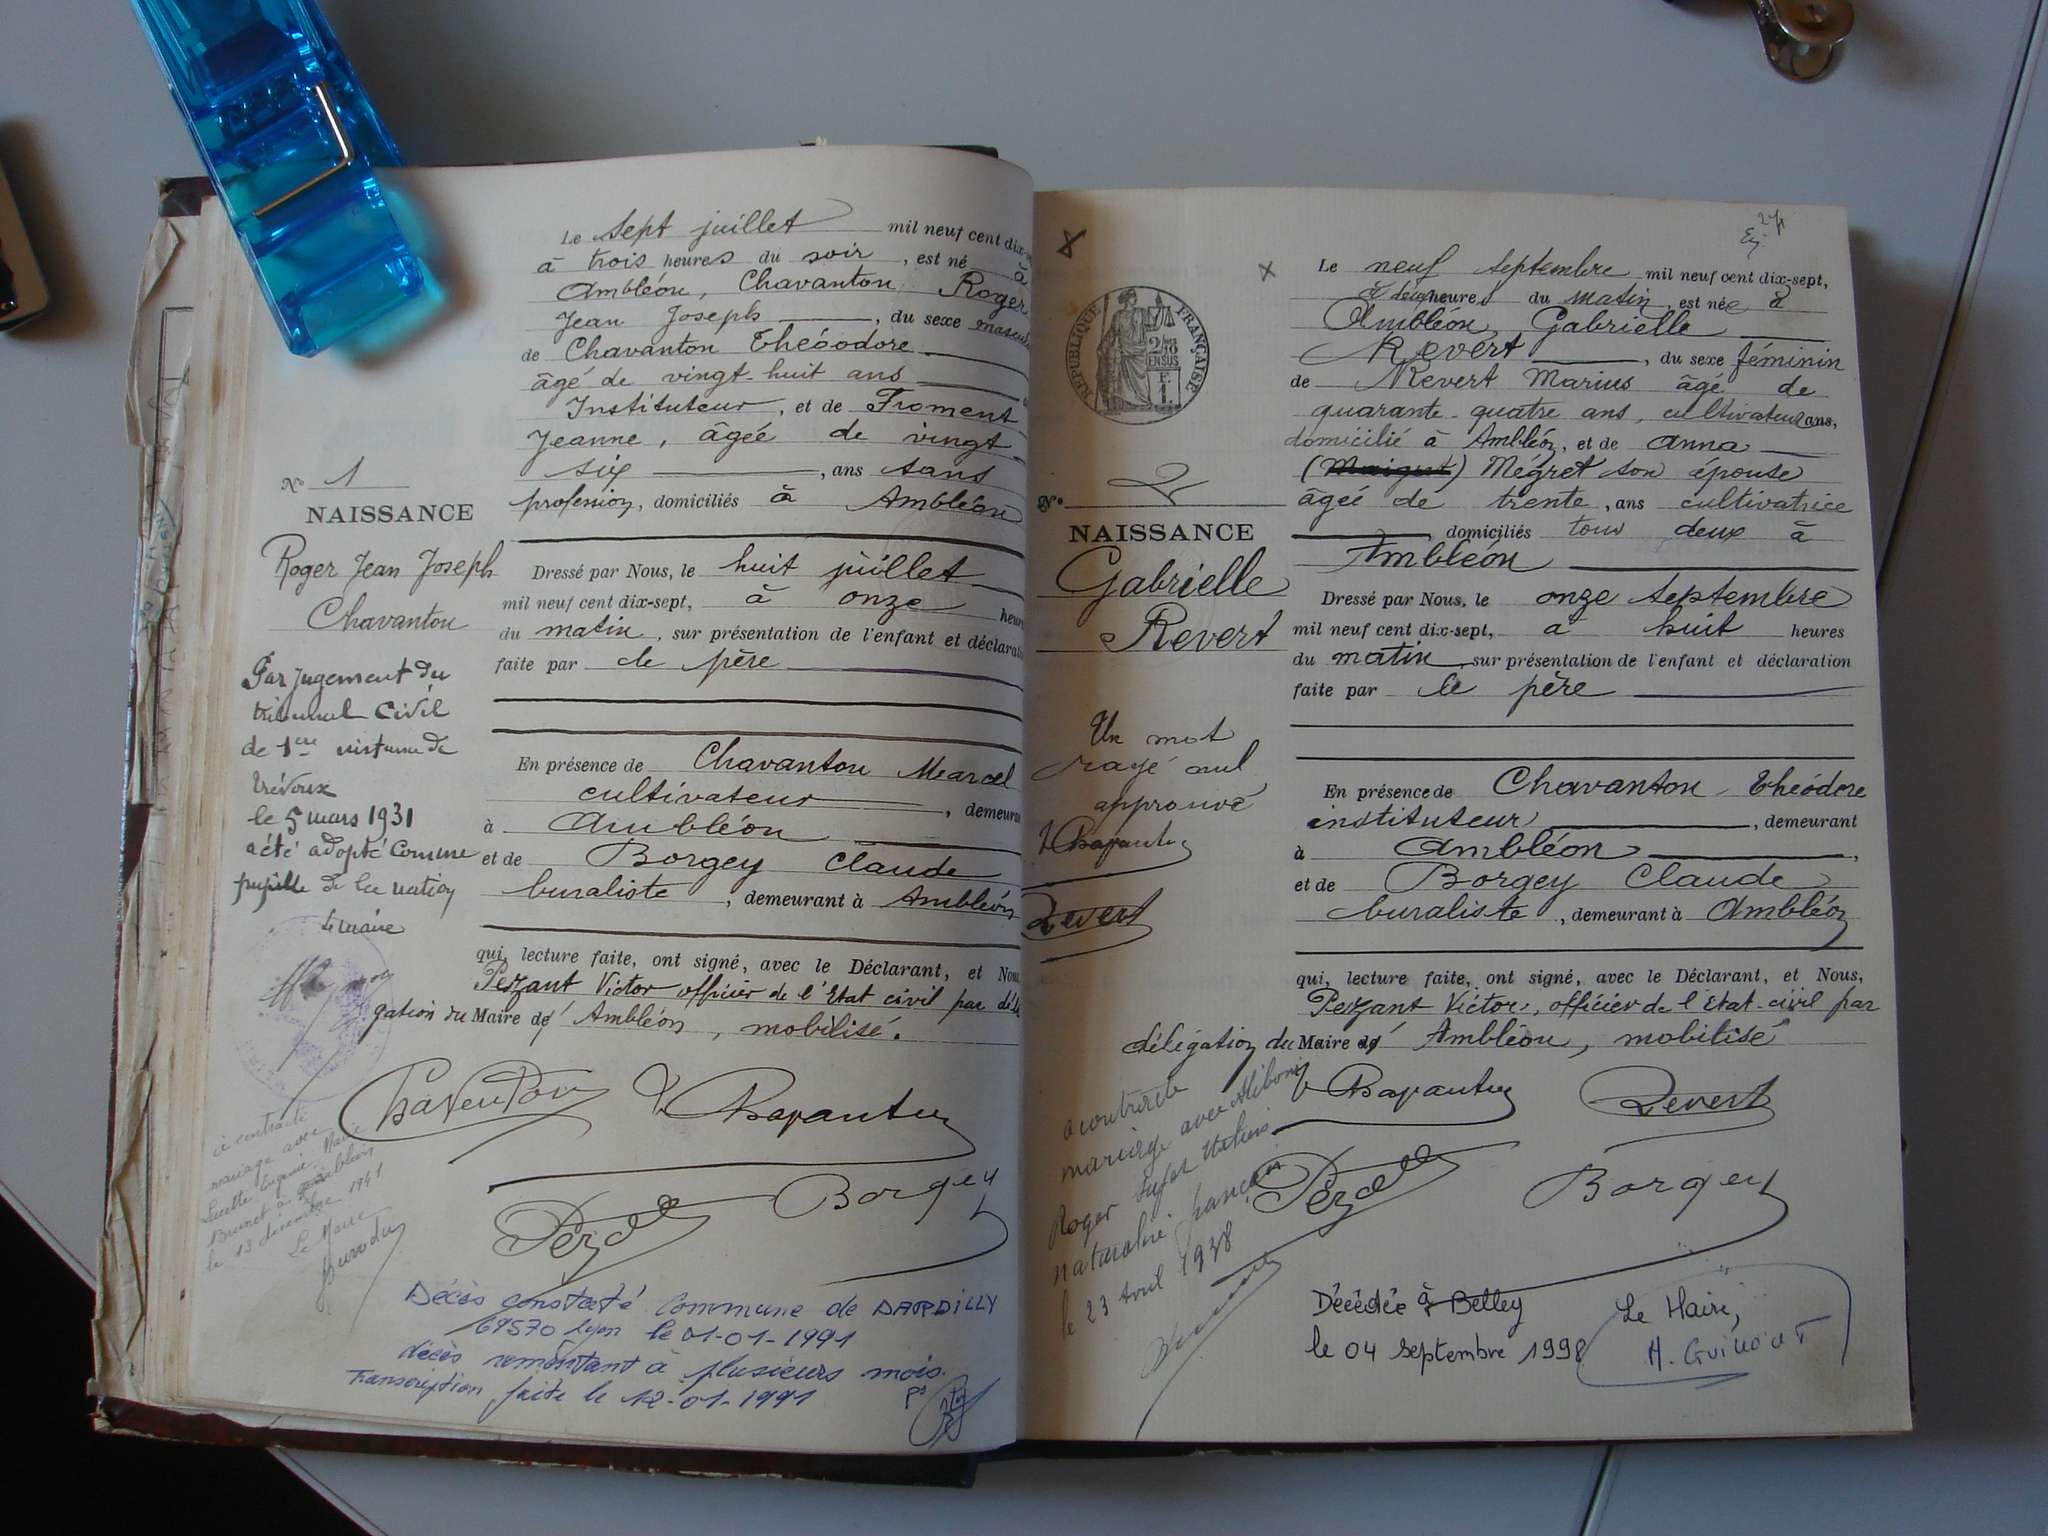 Le sept juillet mil neuf cent dix-
à trois heures du soir, est né à
Ambléon, Chavanton Roger
Jean Joseph, du sexe mascul
de Chavanton Théoodore
âgé de vingt-huit ans
Instituteur, et de Froment
Jeanne, âgée de vingt
six, ans sans
profession, domiciliés à Ambléon
N° 1
NAISSANCE
Roger Jean Joseph
Chavanton
Dressé par Nous, le huit juillet
mil neuf cent dix-sept, à onze heures
du matin, sur présentation de l'enfant et déclaration
faite par le père
Par jugement du
tribunal Civil
de 1ère instance de
Trévoux
le 5 mars 1931
a été adopté comme
pupille de la nation
Le Maire
En présence de Chavanton Marcel
cultivateur, demeurant
à Ambléon
et de Borgey Claude
buraliste, demeurant à Ambléon
qui, lecture faite, ont signé, avec le Déclarant, et Nous
Pezant Victor officier de l'Etat civil par délé
gation du Maire d' Ambléon, mobilisé.
a contracté
mariage avec
Lucette Eugénie Marie
Brunet à Ambléon
le 13 décembre 1941
Le Maire
Borgey
Décès constaté Commune de DARDILLY
69570 Lyon le 01-01-1991
décès remontant à plusieurs mois.
Transcription faite le 12-01-1991
24
X
X
RÉPUBLIQUE FRANÇAISE
Le neuf septembre mil neuf cent dix-sept,
à deux heures du matin, est née à
Ambléon, Gabrielle
Revert, du sexe féminin
de Revert Marius âgé de
quarante-quatre ans, cultivateur ans,
domicilié à Ambléon, et de Anna
() Mégret son épouse
âgée de trente, ans cultivatrice
domiciliés tous deux à
Ambléon
N° 2
NAISSANCE
Gabrielle
Revert
Dressé par Nous, le onze septembre
mil neuf cent dix-sept, à huit heures
du matin, sur présentation de l'enfant et déclaration
faite par le père
Un mot
rayé nul
approuvé
Revert
En présence de Chavanton Théodore
instituteur, demeurant
à Ambléon,
et de Borgey Claude
buraliste, demeurant à Ambléon
qui, lecture faite, ont signé, avec le Déclarant, et Nous,
Pezant Victor, officier de l'Etat-civil par
délégation du Maire d' Ambléon, mobilisé
Revert
Borgey
a contracté
mariage avec
Roger sujet italien
naturalisé français
le 23 avril 1938
Décédée à Belley
le 04 septembre 1998
Le Maire,